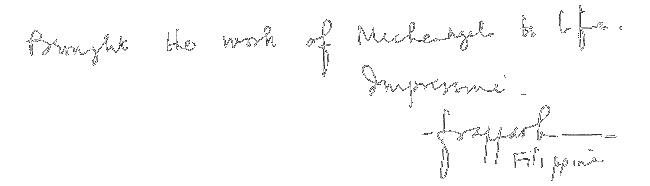 Brought the work of Michelangelo to life.
Impressive.
Filippine